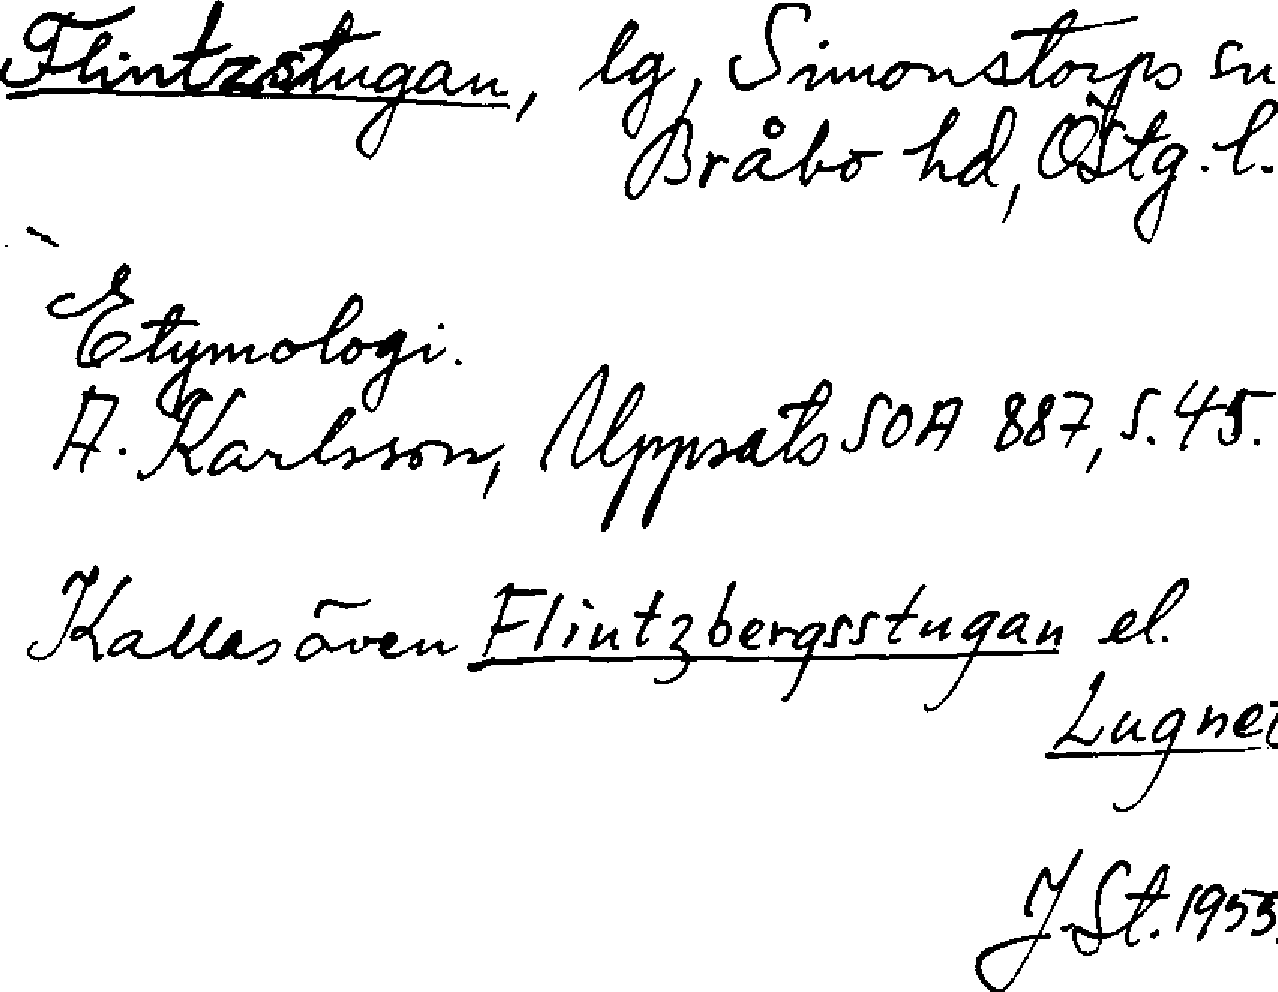 Flintzstugan, lg, Simonstorps sn
Bråbo hd, Östg. l.
Etymologi.
A. Karlsson, Uppsats SOA 887, s. 45.
Kallas även Flintzbergsstugan el.
Lugnet
J. St. 1953.